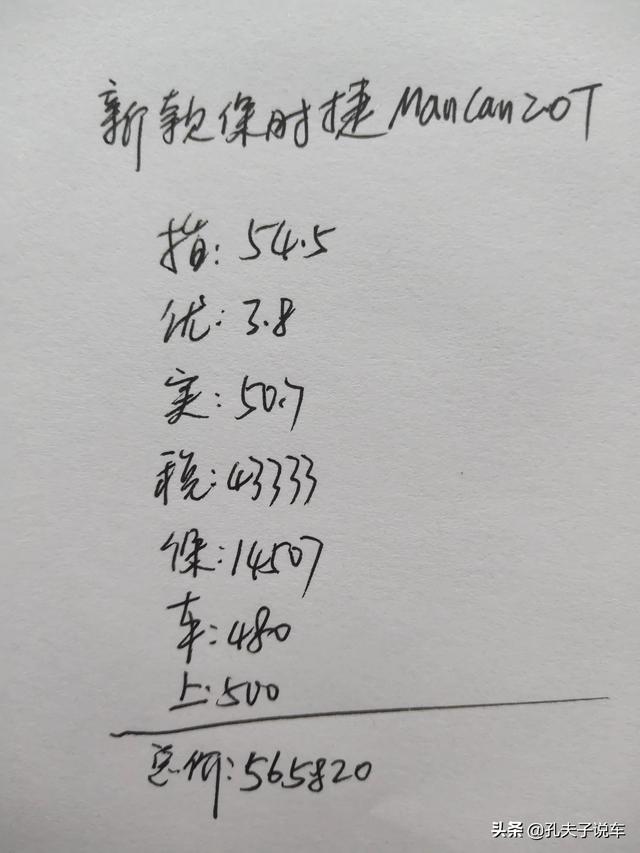 新款保时捷ManCan2.0T
指:54.5
优:3.8
实:50.7
税:43333
保:14507
车:480
上:500
总价:565820
头条 @孔夫子说车